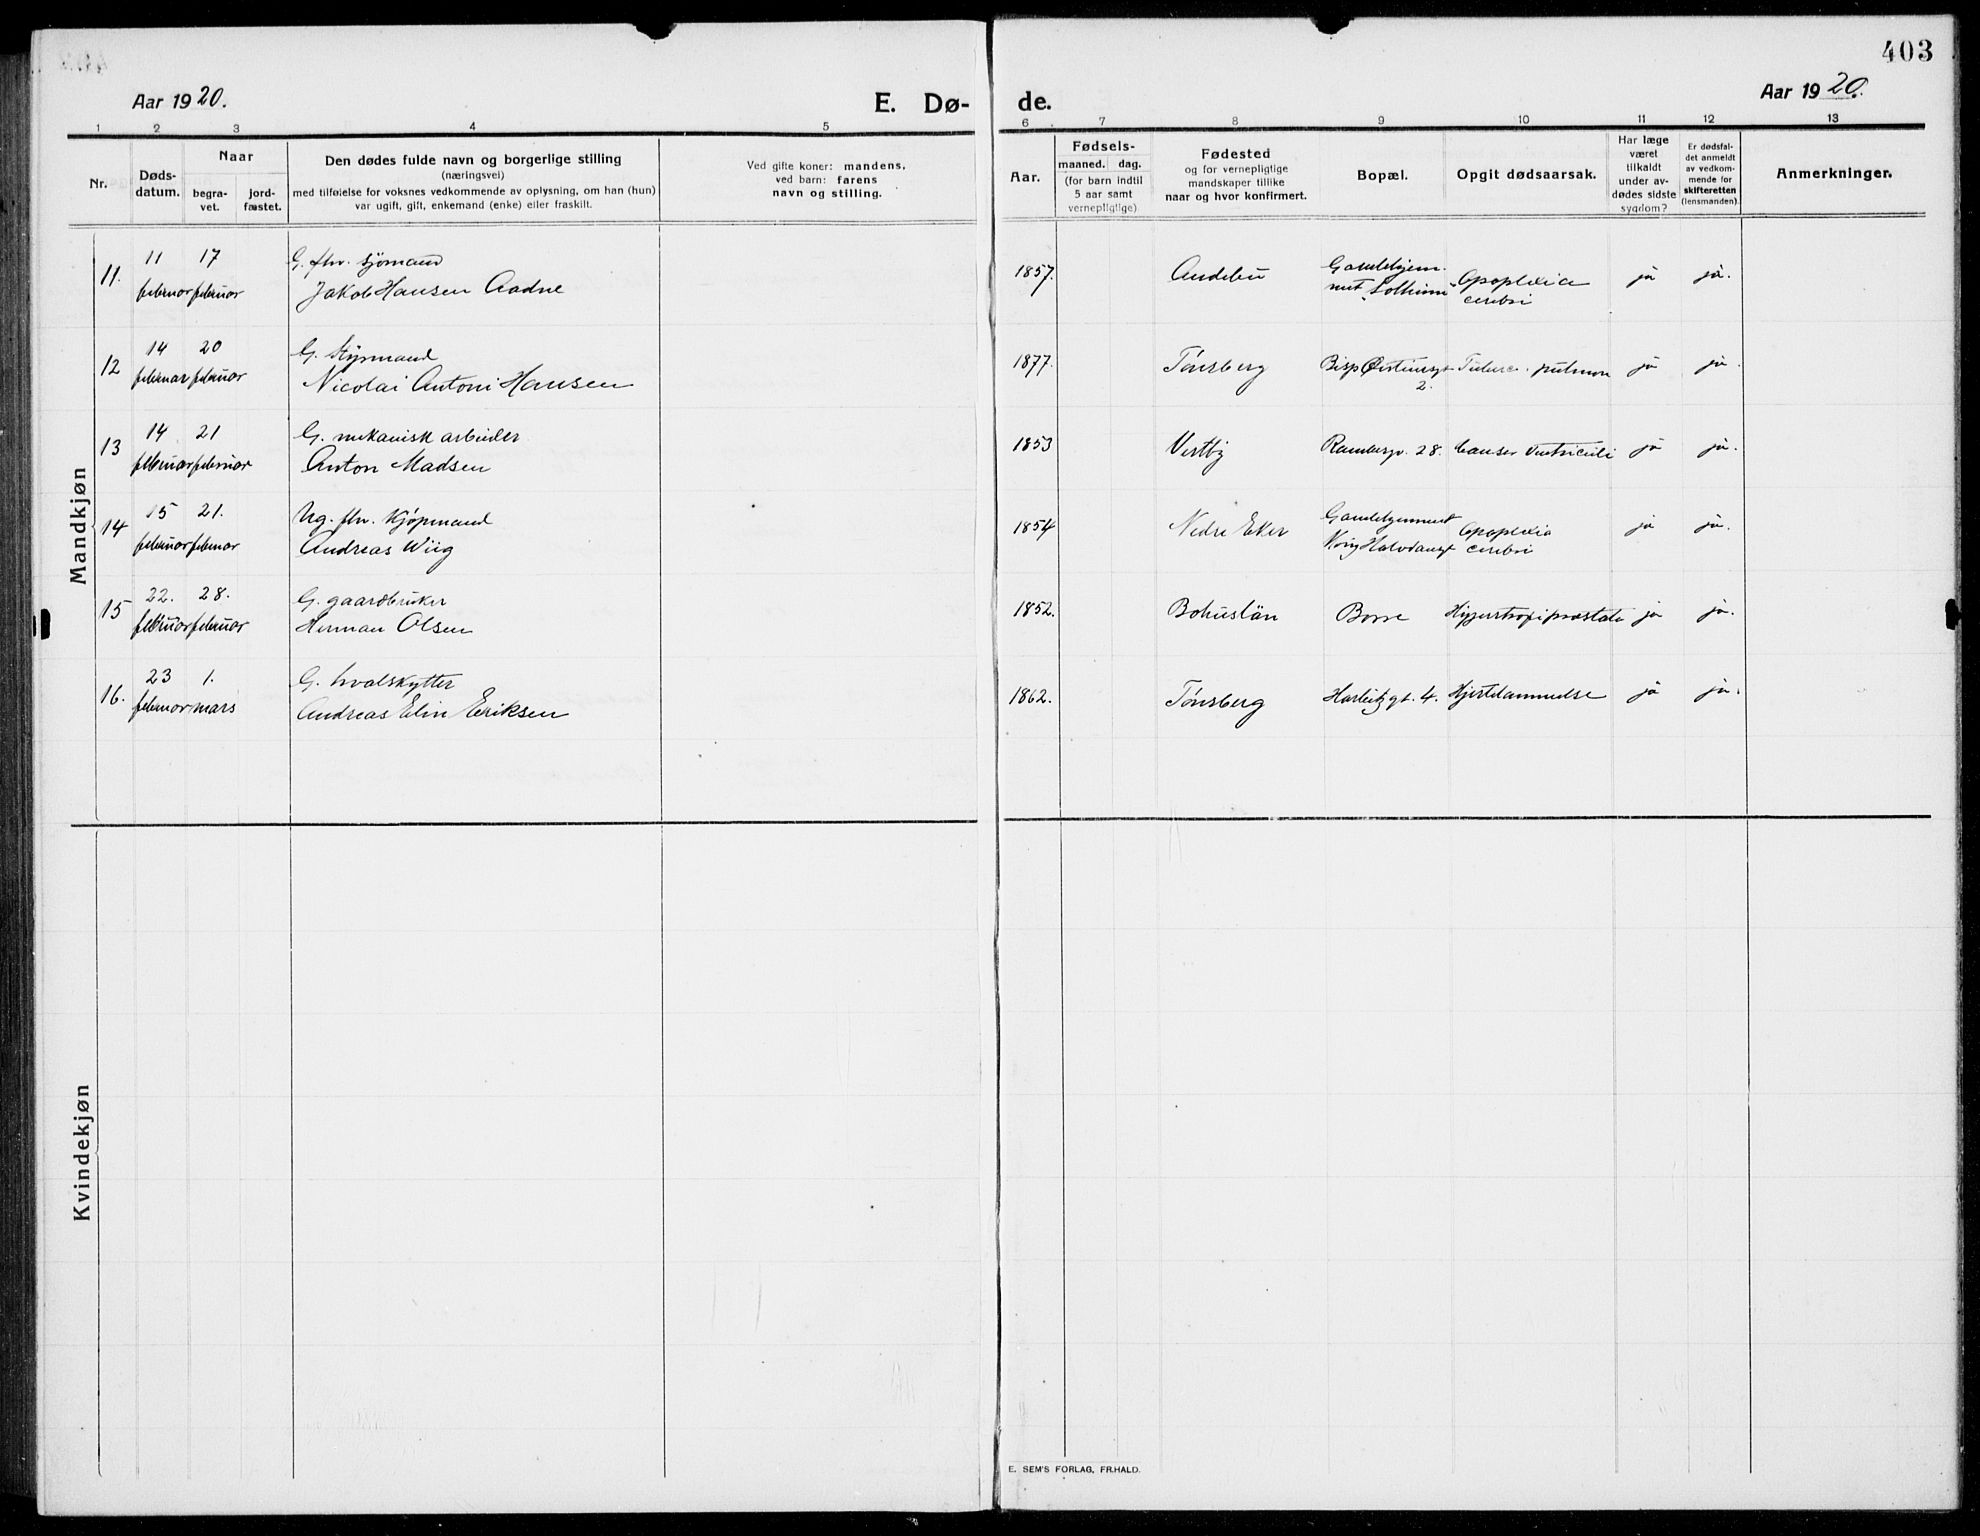 403
Aar 1920.
E. Dø-
de.
Aar 1920.
1 2 3 4 5 6 7 8 9 10 11 12 13
Nr.
Døds-
datum.
Naar
begra-
vet.
jord-
fæstet.
Den dødes fulde navn og borgerlige stilling
(næringsvei)
med tilføielse for voksnes vedkommende av oplysning, om han (hun)
var ugift, gift, enkemand (enke) eller fraskilt.
Ved gifte koner: mandens,
ved barn: farens
navn og stilling.
Aar.
Fødsels-
maaned. dag.
(for barn indtil
5 aar samt
vernepligtige)
Fødested
og for vernepligtige
mandskaper tillike
naar og hvor konfirmert.
Bopæl.
Opgit dødsaarsak.
Har læge
været
tilkaldt
under av-
dødes sidste
sygdom?
Er dødsfal-
det anmeldt
av vedkom-
mende for
skifteretten
(lensmanden).
Anmerkninger.
Mandkjøn
11. 11 februar 17 februar
G. fhv. sjømand
Jakob Hansen Aadne
1857. Andebu
Gamlehjem-
met "Solheim"
Apoplexia
cerebri
ja ja.
12 14 februar 20 februar
G. Styrmand
Nicolai Antoni Hansen
1877. Tønsberg
Bisp Øisteinsgt
2.
Tuberc. pulmon
ja ja.
13 14 februar 21 februar
G. mekanisk arbeider
Anton Madsen
1853 Vestby
Rambergv. 28.
Cancer Ventriculi
ja ja.
14 15 februar 21. februar
Ug. fhv. Kjøpmand
Andreas Wiig
1854 Nedre Eker
Gamlehjemmet
Kong Halvdansgt
Apoplexia
cerebri
ja ja.
15 22. februar 28. februar
G. gaardbruker
Herman Olsen
1852. Bohuslän
Borre
Hypertrofi prostate
ja ja.
16. 23 februar 1. mars
G. hvalskytter
Andreas Elin Eriksen
1862. Tønsberg
gt. 4.
Hjertelammelse
ja ja.
Kvindekjøn
E. SEM'S FORLAG, FR.HALD.